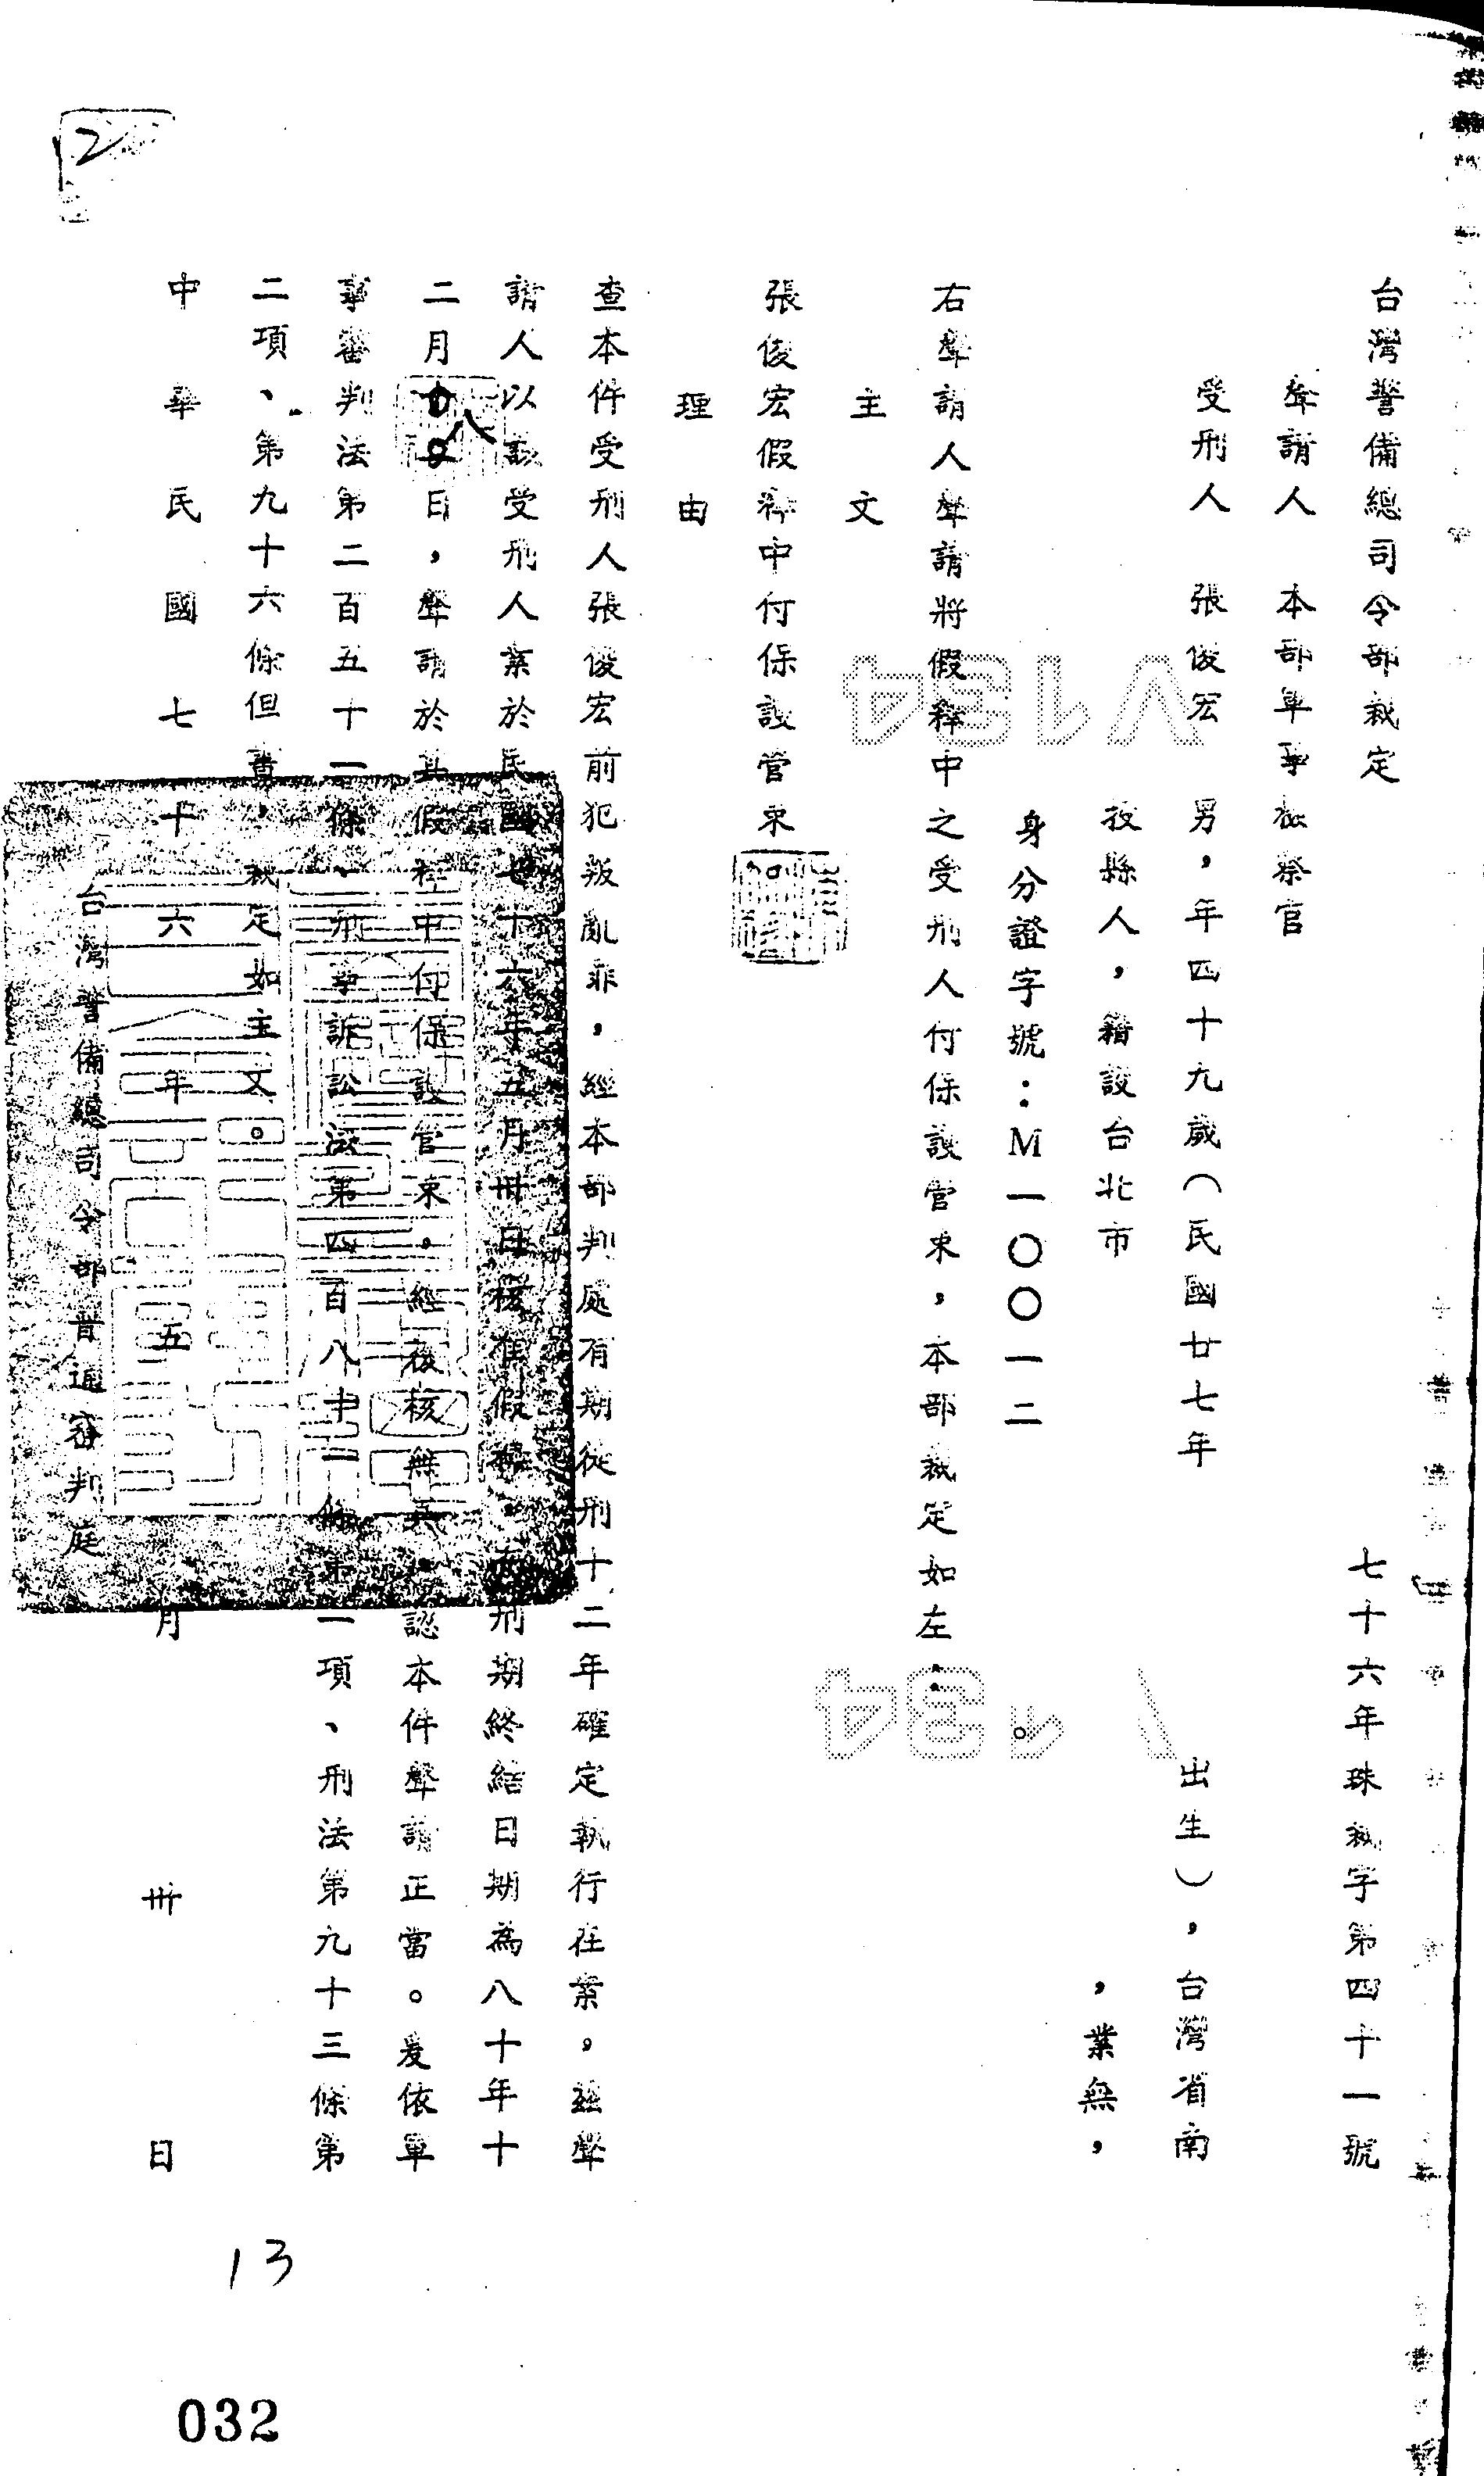 台灣警備總司令部裁定
七十六年珠裁字第四十一號
聲請人 本部軍事檢察官
受刑人 張俊宏 男,年四十九歲(民國廿七年 出生),台灣省南
投縣人,籍設台北市 ,業無,
身分證字號:M一〇〇一二 。
右聲請人聲請將假釋中之受刑人付保護管束,本部裁定如左:
主文
張俊宏假釋中付保護管束
理由
查本件受刑人張俊宏前犯叛亂罪,經本部判處有期徒刑十二年確定執行在案,茲聲
請人以該受刑人業於民國七十六年五月卅日核准假釋,刑期終結日期為八十年十
二月 八日,聲請於其假釋中付保護管束,經核無異,認本件聲請正當。爰依軍
事審判法第二百五十一條、刑事訴訟法第四百八十一條第一項、刑法第九十三條第
二項、第九十六條但書,裁定如主文。
中華民國七十六年五月卅日
台灣警備總司令部普通審判庭
2
V134
V134
13
032